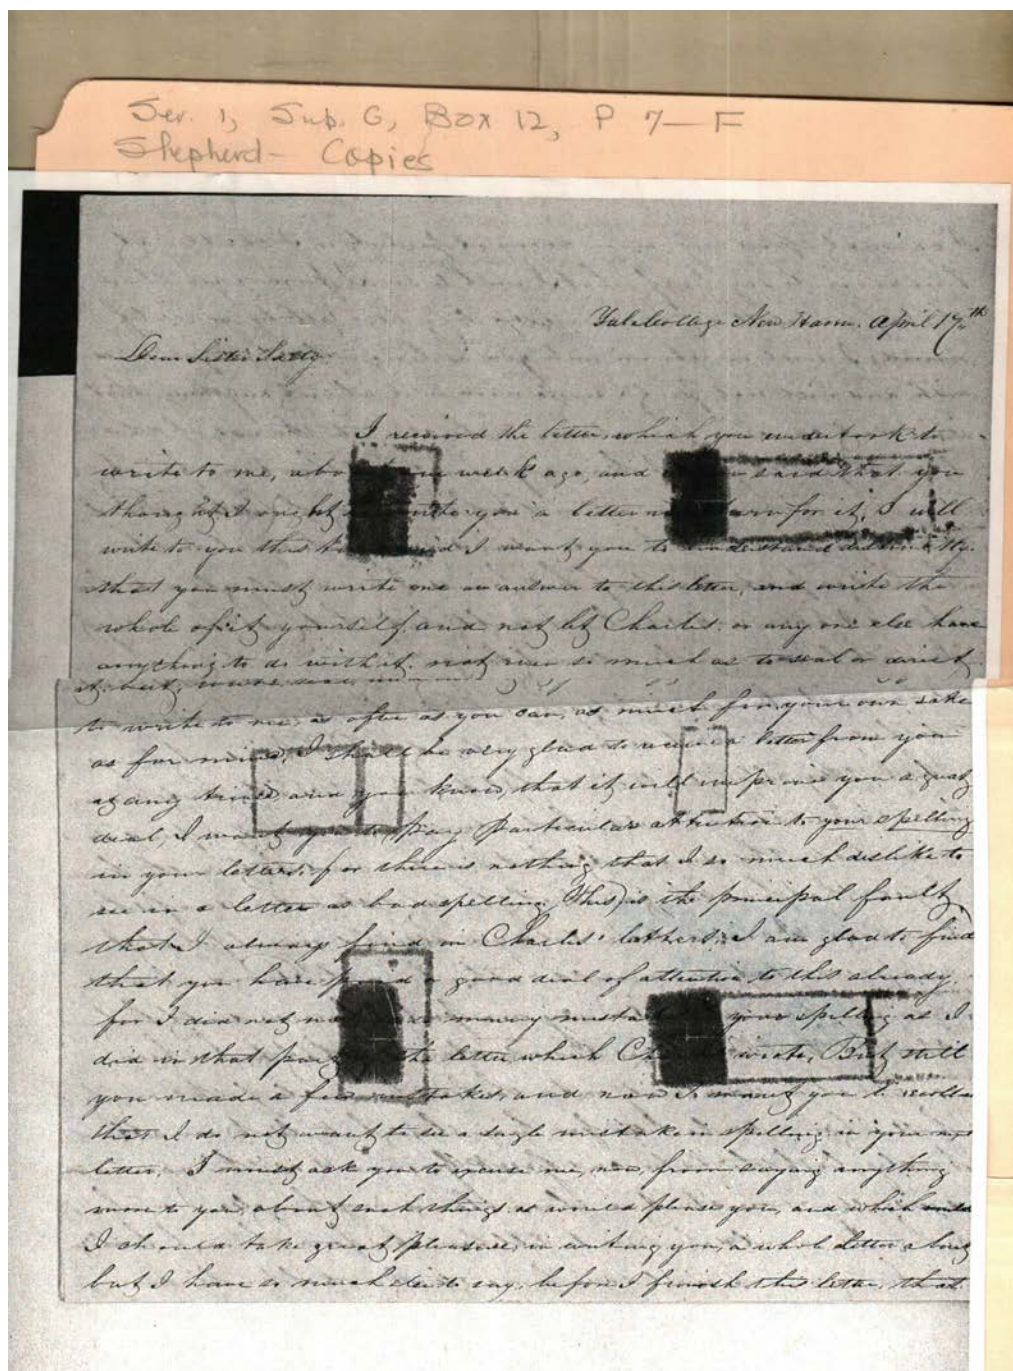 Ser. 1, Sub. G, Box 12, P 7—F
Shepherd— Copies
Yale College New Haven. April 17th
Dear Sister
I received the letter, which you undertook to
write to me, week ago, and said that you
thought I ought you a letter for it, I will
write to you this and I want you to understand distinctly.
that you must write one in answer to this letter, and write the
whole of it yourself, and not let Charles. or any one else have
anything to do with it. not even so much as to seal or direct
it. but
to write to me, as often as you can, as much for your own sake
as for mine, I shall be very glad to receive a letter from you
at any time and you know, that it will improve you a great
deal, I want you to pay particular attention to your spelling
in your letters. for there is nothing that I so much dislike to
see in a letter as bad spelling, This is the principal fault
that I always find in Charles' letters. I am glad to find
that you have paid a good deal of attention to this already
for I did not many your spelling as I
did in that part the letter which wrote, But still
you made a few mistakes, and now I want you to
that I do not want to see a single mistake in spelling in your next
letter. I must ask you to excuse me, now, from saying anything
more to you, about such things as would please you, and which
I should take great pleasure, in writing you, a whole letter about
but I have so much else to say, before I finish this letter, that